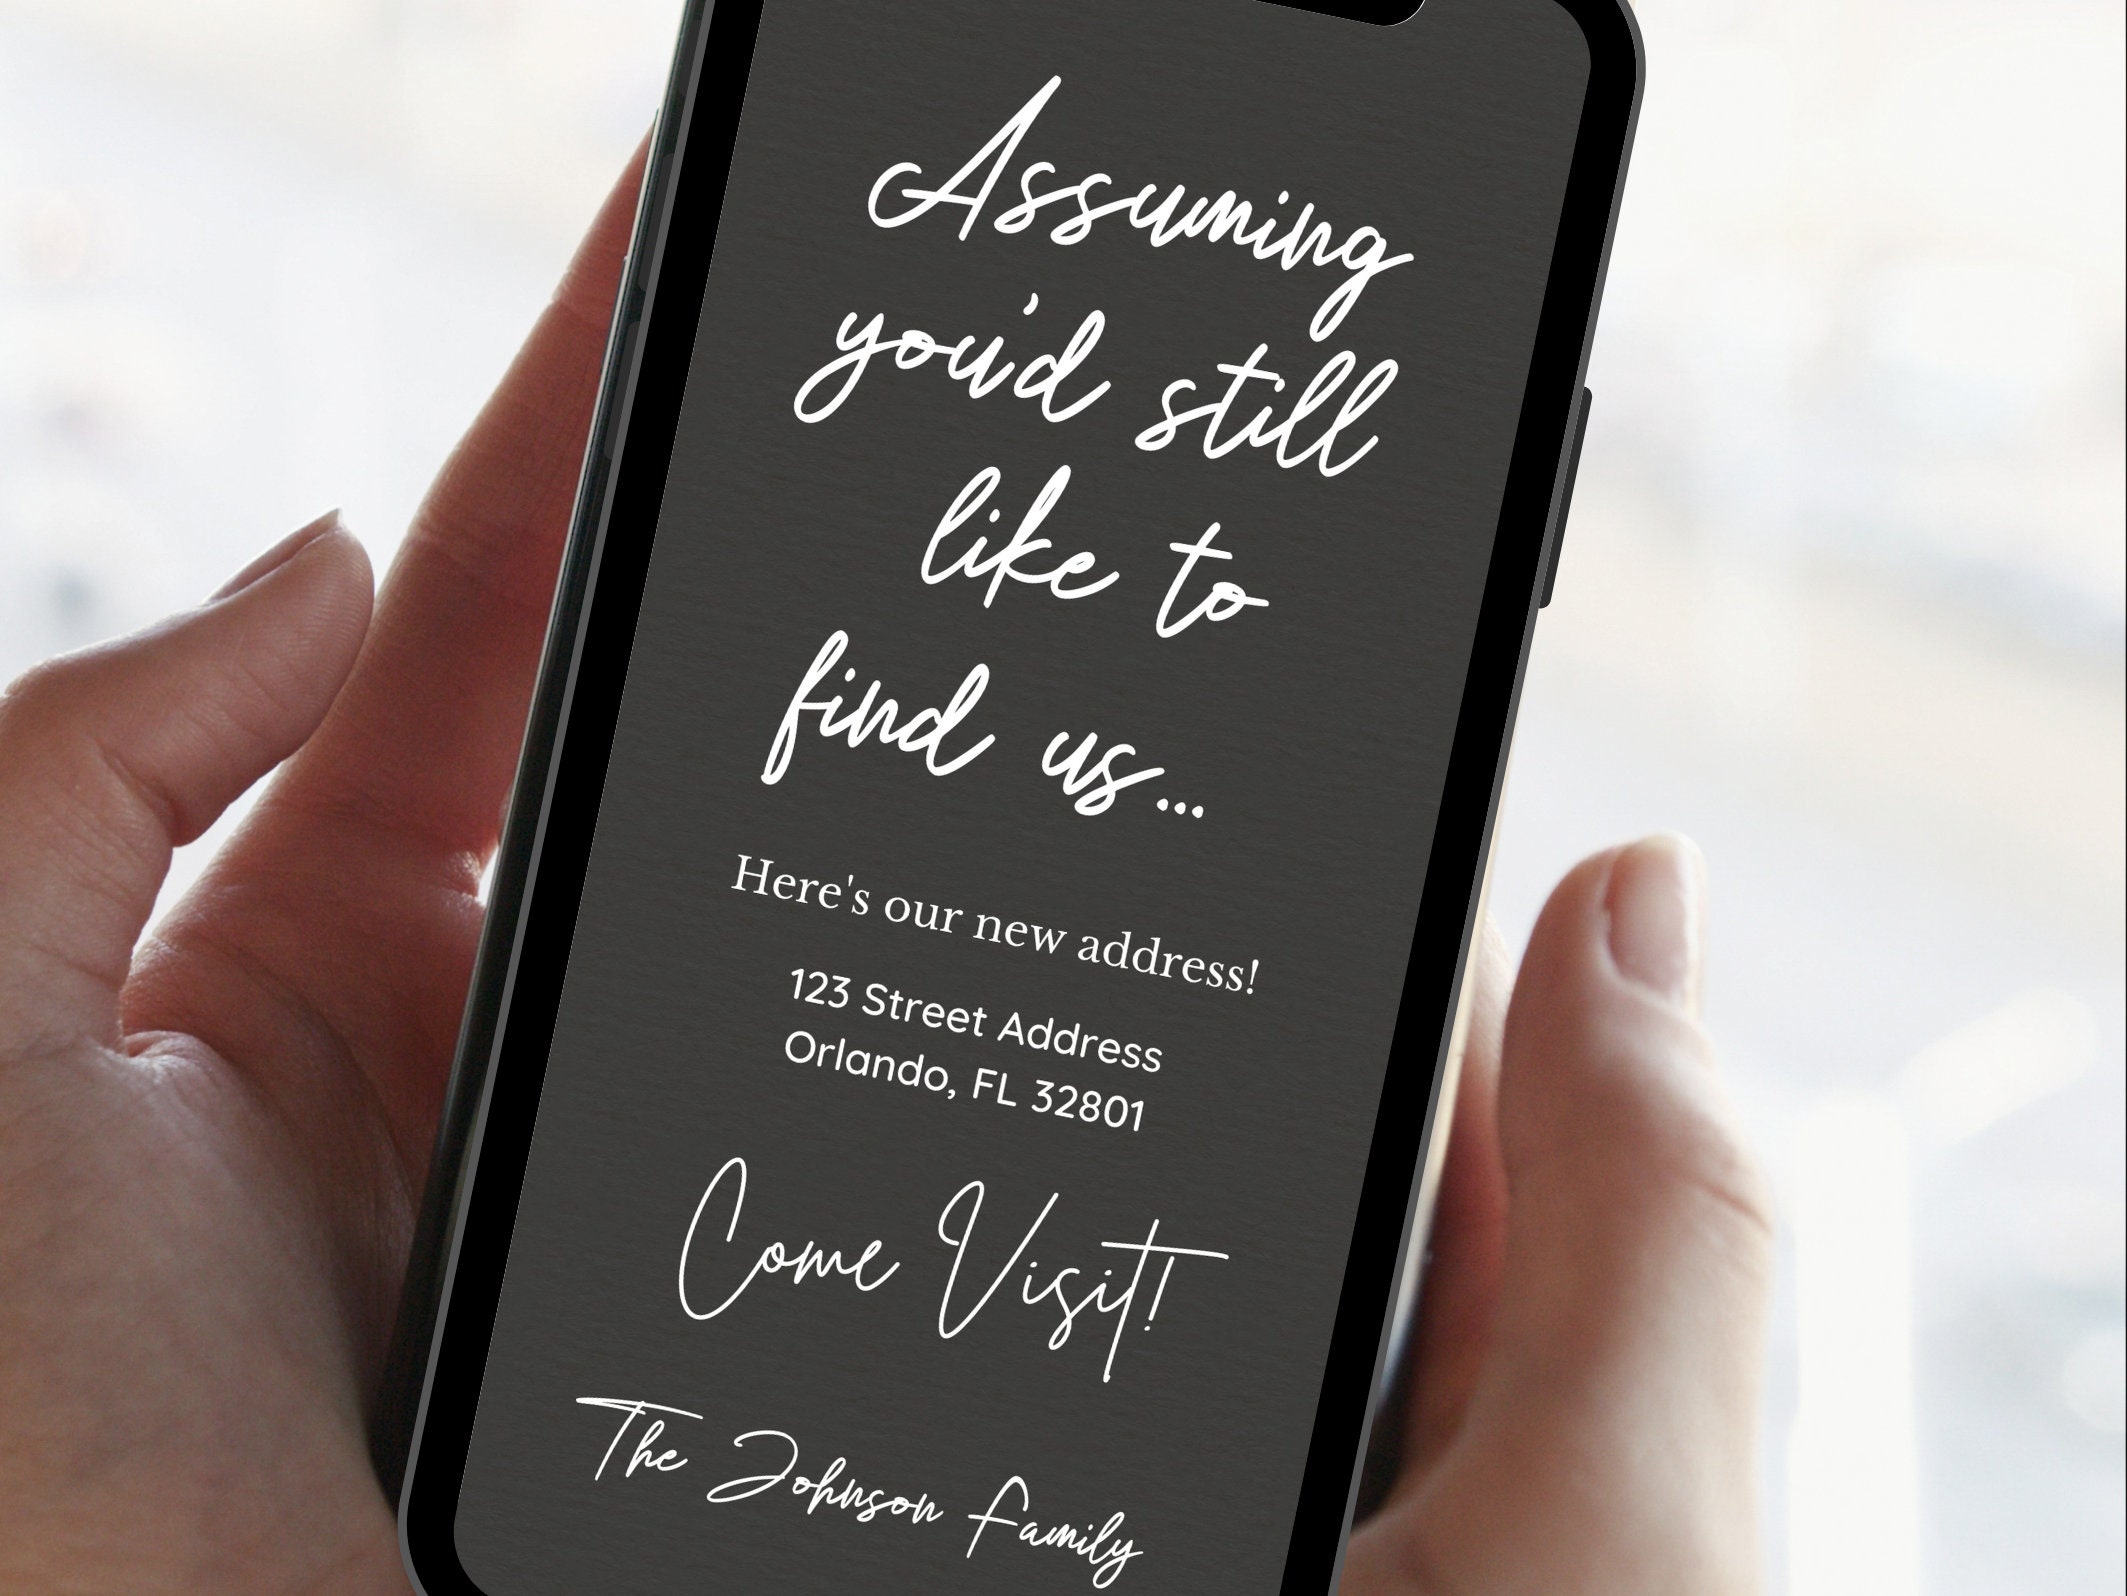 Assuming
you'd still
like to
find us...
Here's our new address!
123 Street Address
Orlando, FL 32801
Come Visit!
The Johnson Family